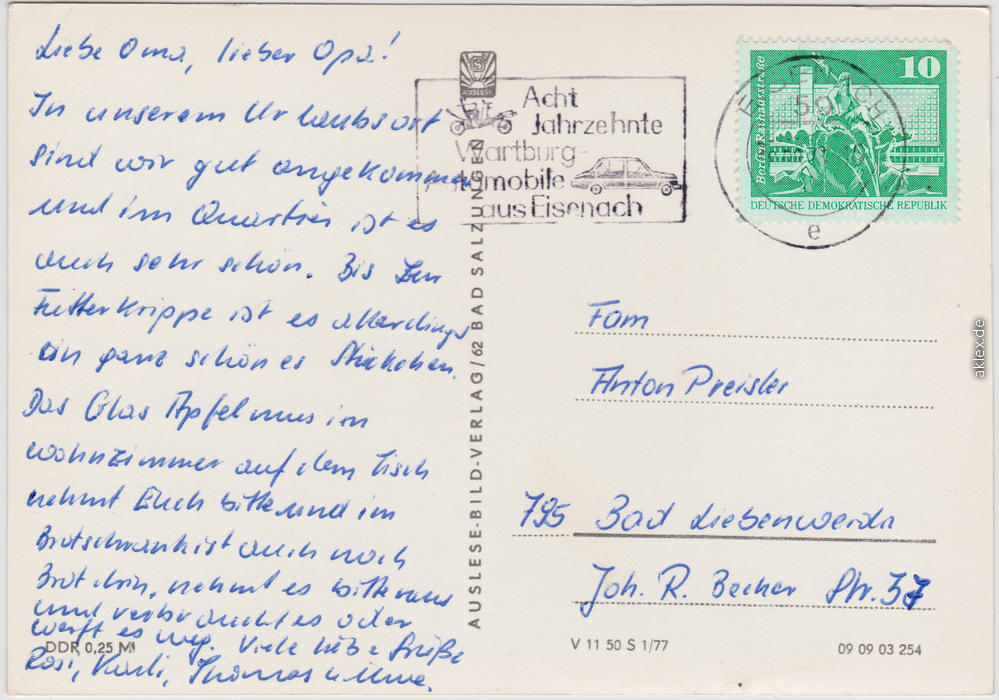 Liebe Oma, lieber Opa!
In unserem Urlaubsort
sind wir gut angekommen
und im Quartier ist es
auch sehr schön. Bis zur
Futterkrippe ist es allerdings
ein ganz schönes Stückchen.
Das Glas Apfelmus im
Wohnzimmer auf dem Tisch
nehmt Euch bitte und im
Brotschrank ist auch noch
Brot drin, nehmt es bitte raus
und verbraucht es oder
werft es weg. Viele liebe Grüße
Rosi, Karli, Thomas u. Uwe.
DDR 0,25 M
AUSLESE-BILD-VERLAG/62 BAD SALZUNGEN
AUSLESE
Acht
Jahrzehnte
Wartburg-
Automobile
aus Eisenach
EISENACH
59
e
10
Berlin, Rathausstraße
DEUTSCHE DEMOKRATISCHE REPUBLIK
Fam
Anton Preisler
795 Bad Liebenwerda
Joh. R. Becher Str. 37
V 11 50 S 1/77
09 09 03 254
aklex.de